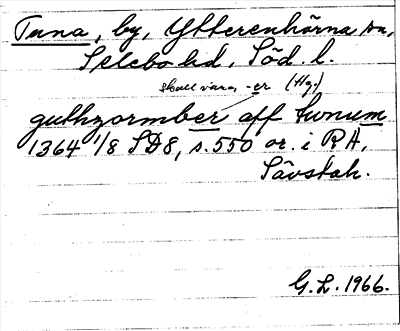 Tuna, by, Ytterenhörna sn,
Selebo hd, Söd. l.
skall vara, -er (Hg.)
guthzormber aff tunum
1364 1/8 SD8, s. 550 or. i RA,
Sävstah.
G.L. 1966.